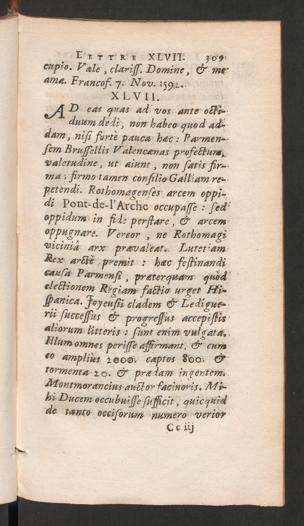 LETTRE XLVII. 309
cupio. Vale, clariss. Domine, & me
ama. Francof. 7. Nov. 1592.
XLVII.
AD eas quas ad vos ante octi-
duum dedi, non habeo quod ad-
dam, nisi fortè pauca hæc: Parmen-
sem Brussellis Valencenas profectum,
valetudine, ut aiunt, non satis fir-
ma: firmo tamen consilio Galliam re-
petendi. Rothomagenses arcem oppi-
di Pont-de-l'Arche occupasse: sed
oppidum in fide perstare, & arcem
oppugnare. Vereor, ne Rothomagi
vicinià arx prævaleat. Lutetiam
Rex arctè premit: hæc festinandi
causa Parmensi, præterquam quòd
electionem Regiam factio urget Hi-
spanica. Joyeusii cladem & Lédigue-
rii successus & progressus accepistis
aliorum litteris: sunt enim vulgata.
Illum omnes perisse affirmant, & cum
eo amplius 2000. captos 800. &
tormenta 20. & prædam ingentem.
Montmorancius auctor facinoris. Mi-
hi Ducem occubuisse sufficit, quicquid
de tanto occisorum numero verior
Cc iij